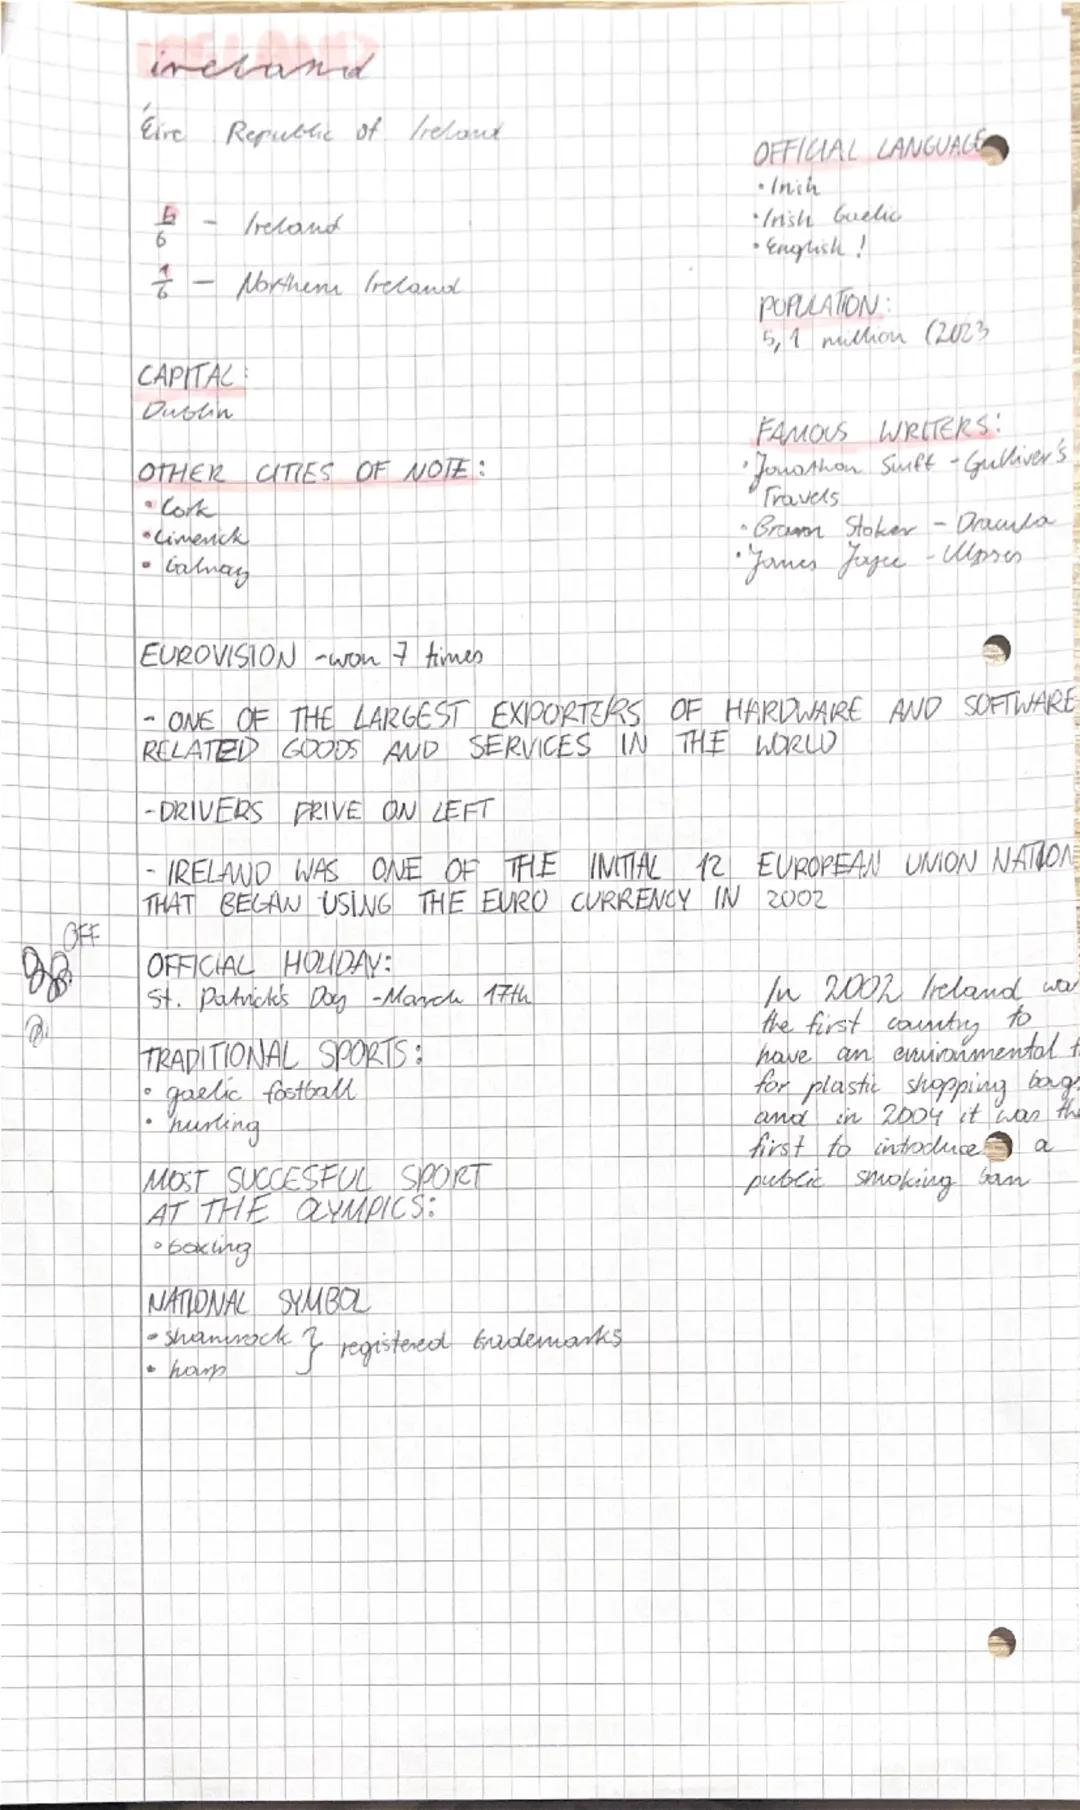 ireland
Éire Republic of Ireland
5/6 - Ireland
1/6 - Northern Ireland
CAPITAL:
Dublin
OTHER CITIES OF NOTE:
• Cork
• Limerick
• Galway
OFFICIAL LANGUAGE
• Irish
• Irish Gaelic
• English!
POPULATION:
5,1 million (2023
FAMOUS WRITERS:
• Jonathan Swift - Gulliver's
Travels
• Bram Stoker - Dracula
• James Joyce - Ulysses
EUROVISION - won 7 times
- ONE OF THE LARGEST EXPORTERS OF HARDWARE AND SOFTWARE
RELATED GOODS AND SERVICES IN THE WORLD
- DRIVERS DRIVE ON LEFT
- IRELAND WAS ONE OF THE INITIAL 12 EUROPEAN UNION NATION
THAT BEGAN USING THE EURO CURRENCY IN 2002
OFF
OFFICIAL HOLIDAY:
St. Patrick's Day - March 17th
TRADITIONAL SPORTS:
• gaelic football
• hurling
MOST SUCCESFUL SPORT
AT THE OLYMPICS:
• boxing
NATIONAL SYMBOL
• shamrock } registered trademarks
• harp
In 2002 Ireland wa
the first country to
have an environmental t
for plastic shopping bags
and in 2004 it was the
first to introduce a
public smoking ban